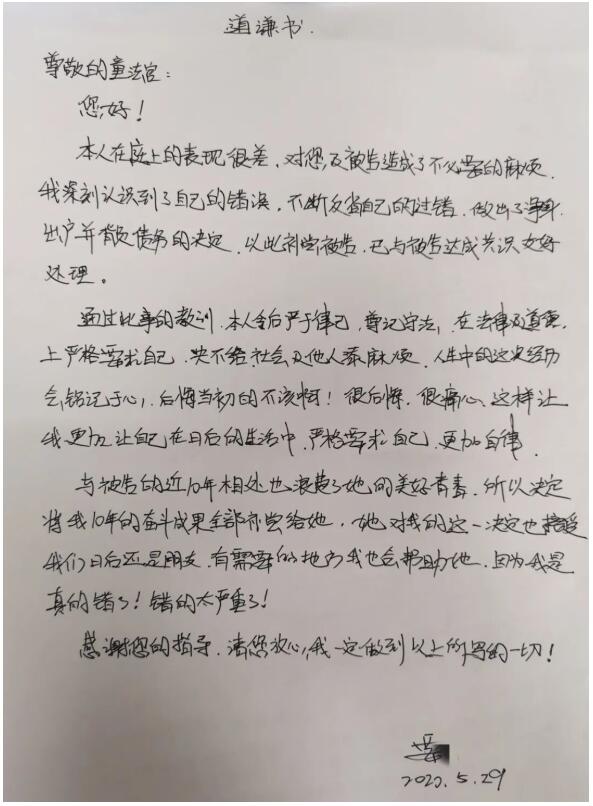 道谦书.
尊敬的童法官：
您好！
本人在庭上的表现很差，对您及被告造成了不必要的麻烦
我深刻认识到了自己的错误，不断反省自己的过错，做出了净身
出户并背负债务的决定，以此补偿被告，已与被告达成共识友好
处理。
通过此事的教训，本人今后严于律己，遵纪守法，在法律及道德
上严格要求自己，决不给社会及他人添麻烦，人生中的这次经历
会铭记于心，后悔当初的不该啊！很后悔，很痛心，这样让
我更加让自己在日后的生活中，严格要求自己，更加自律，
与被告的近10年相处也浪费了她的美好青春，所以决定
将我10年的奋斗成果全部补偿给她，她对我的这一决定也接受
我们日后还是朋友，有需要的地方我也会帮助她，因为我是
真的错了！错的太严重了！
感谢您的指导，请您放心，我一定做到以上所写的一切！
2020.5.29